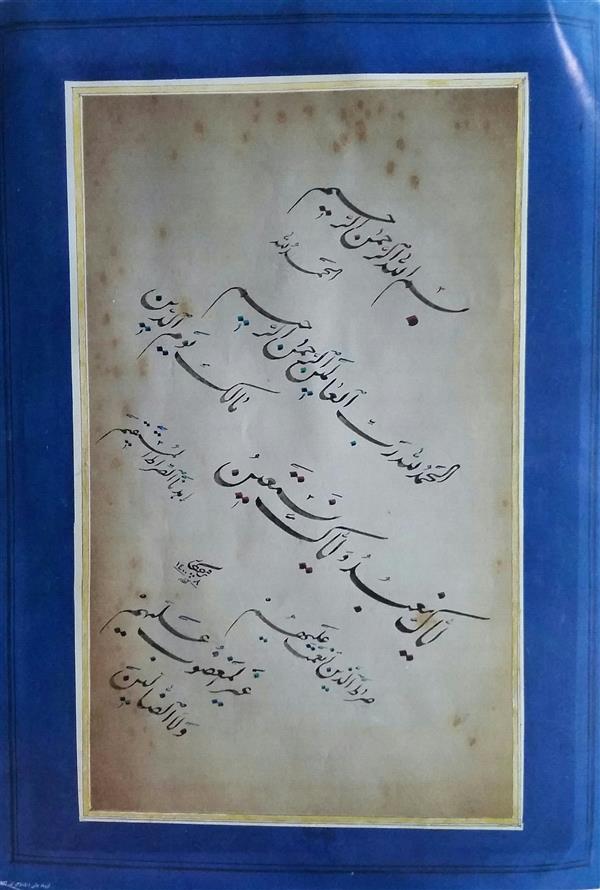 بسم الله الرحمن الرحیم
الحمدلله
الحمدلله رب العالمین الرحمن الرحیم
مالک یوم الدین
ایاک نعبد و ایاک نستعین
اهدنا الصراط المستقیم
صراط الذین انعمت علیهم
غیر المغضوب علیهم
ولا الضالین